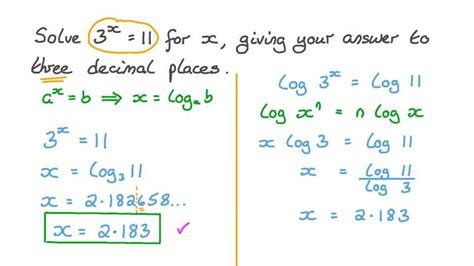 Solve 3ˣ = 11 for x, giving your answer to
three decimal places.
aˣ = b ⟹ x = logₐ b
3ˣ = 11
x = log₃ 11
x = 2·182658...
x = 2·183 ✓
log 3ˣ = log 11
log xⁿ = n log x
x log 3 = log 11
x = log 11 / log 3
x = 2·183